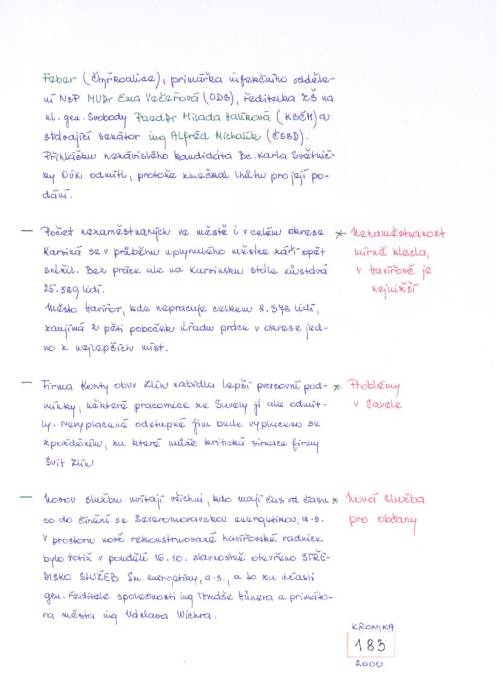 Feber (Čtyřkoalice), primářka infekčního odděle-
ní NsP MUDr Ema Večeřová (ODS), ředitelka ZŠ na
ul. gen. Svobody PaedDr Milada Halíková (KSČM) a
stávající senátor ing Alfréd Michalík (ČSSD).
Přihlášku nezávislého kandidáta Bc. Karla Světnič-
ky OVK odmítl, protože zmeškal lhůtu pro její po-
dání.
— Počet nezaměstnaných ve městě i v celém okrese
Karviná se v průběhu uplynulého měsíce září opět
snížil. Bez práce ale na Karvinsku stále zůstává
25.589 lidí.
Město Havířov, kde nepracuje celkem 8.378 lidí,
zaujímá z pěti poboček úřadu práce v okrese jed-
no z nejlepších míst.
* Nezaměstnanost
mírně klesla,
v Havířově je
nejnižší
— Firma Kionty obuv Zlín nabídla lepší pracovní pod-
mínky, některé pracovnice ze Savely ji ale odmít-
ly. Nevyplacené odstupné jim bude vyplaceno se
zpožděním, za které může kritická situace firmy
Svit Zlín
* Problémy
v Savele
— Novou službu uvítají všichni, kdo mají čas od času
co do činění se Severomoravskou energetikou, a.s.
V prostoru nově rekonstruované havířovské radnice
bylo totiž v pondělí 16.10. slavnostně otevřeno STŘE-
DISKO SLUŽEB Sm energetiky, a.s., a to za účasti
gen. ředitele společnosti ing Tomáše Hünera a primáto-
ra města ing Václava Wichra.
* Nová služba
pro občany
KRONIKA
183
2000